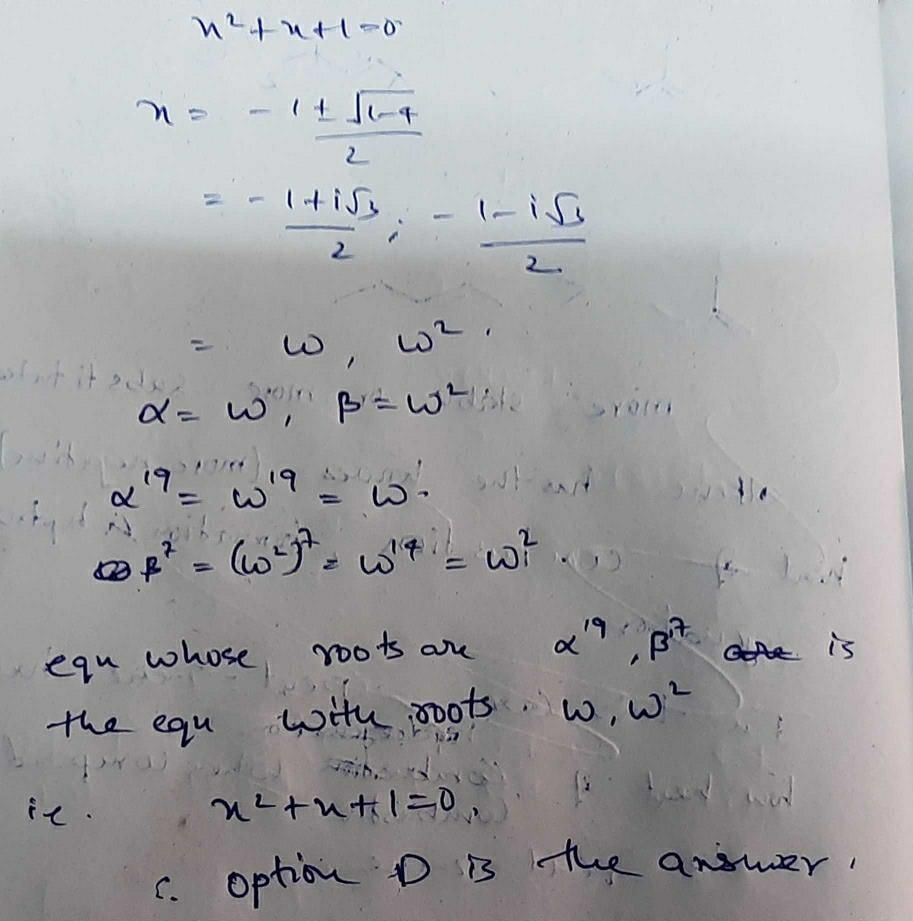 x² + x + 1 = 0
x = -1 ± √1-4 / 2
= -1+i√3 / 2 ; -1-i√3 / 2
= ω, ω².
α = ω, β = ω²
α¹⁹ = ω¹⁹ = ω.
β⁷ = (ω²)⁷ = ω¹⁴ = ω².
equ whose roots are α¹⁹, β⁷ is
the equ with roots ω, ω²
ie. x² + x + 1 = 0,
∴ option D is the answer.